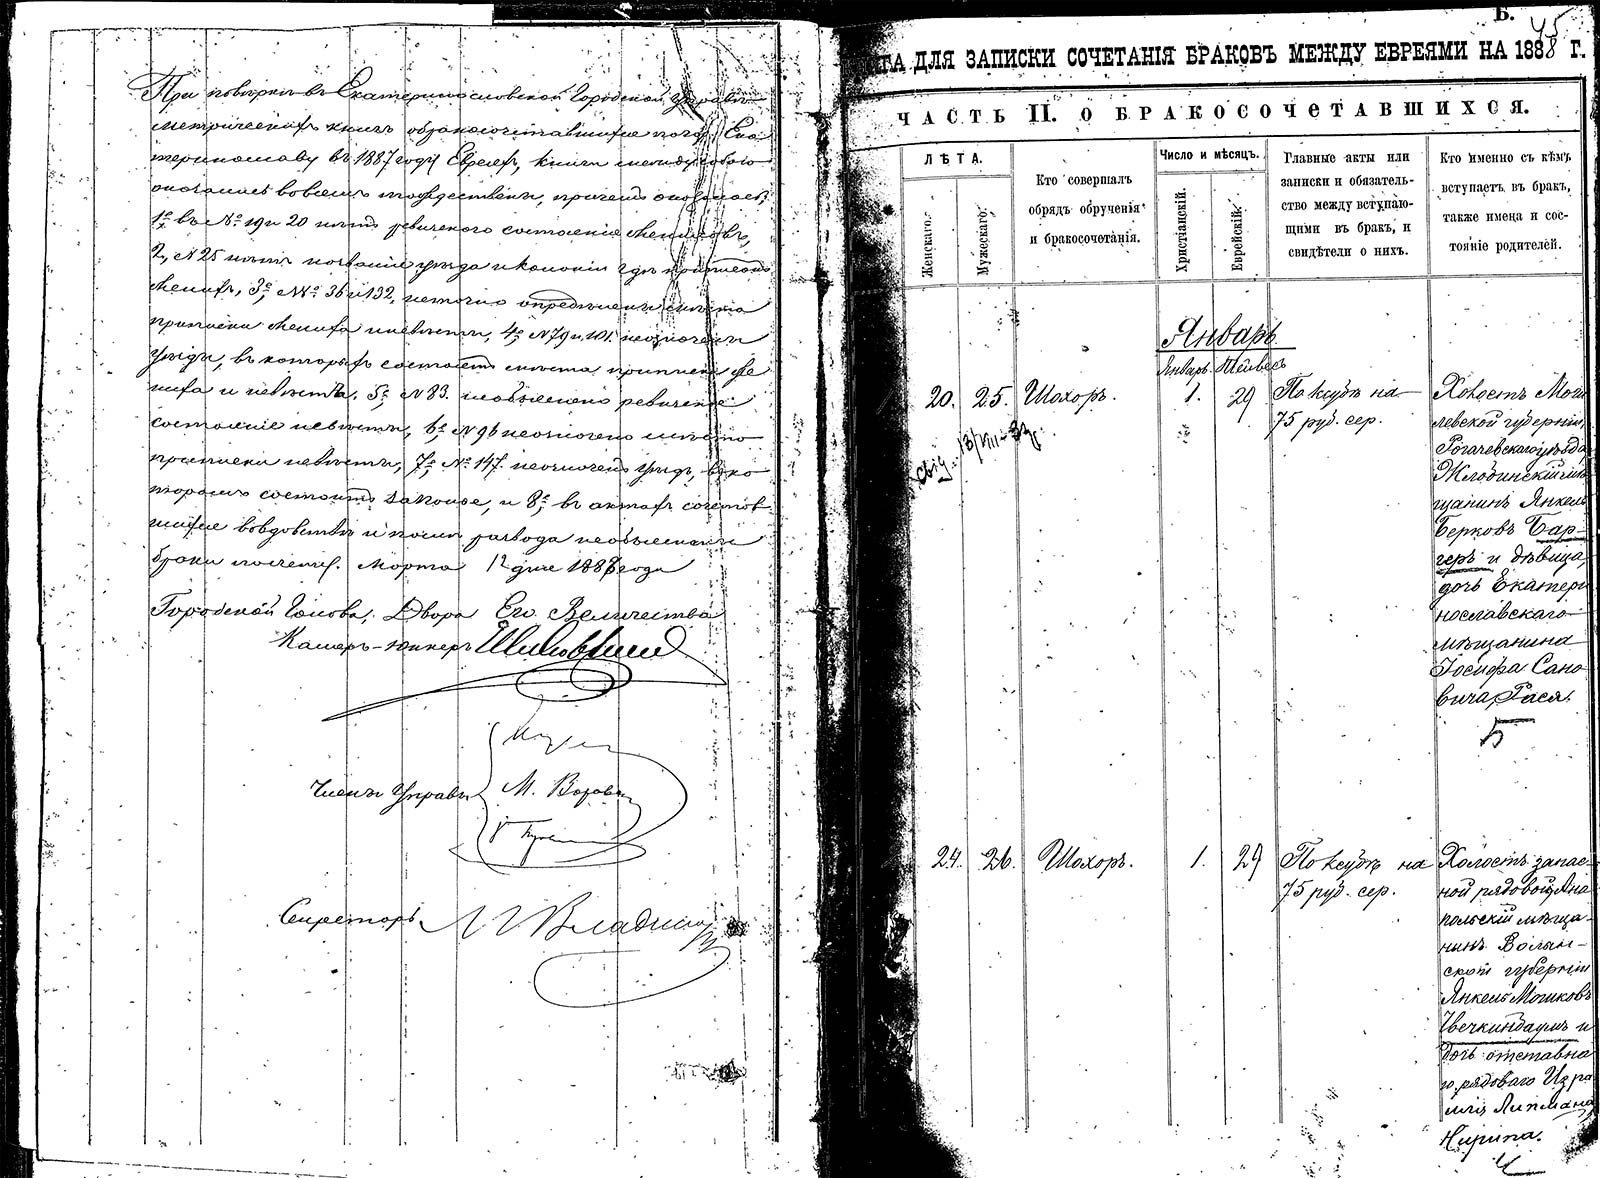 При повѣркѣ въ Екатеринославской Городской Управѣ
метрическихъ книгъ о бракосочетавшихся по гор. Ека
теринославу въ 1887 году Евреевъ, книги между собою
оказались вовсемъ тождественны, причемъ оказалось:
1е, въ №№ 19 и 20 нѣтъ ревизскаго состоянія жениховъ,
2, № 25 нѣтъ названія уѣзда и колоніи гдѣ приписанъ
женихъ, 3е, №№ 36 и 132, неточно опредѣлены мѣста
приписки жениха и невѣсты, 4е, № 79 и 101. неозначены
уѣзды, въ которыхъ состоятъ мѣста приписки же
ниха и невѣсты, 5е, № 83. необъяснено ревизское
состояніе невѣсты, 6е, № 96 неозначено мѣсто
приписки невѣсты, 7е, № 147. неозначенъ уѣздъ, въ ко
торомъ состоитъ и 8е, въ актахъ сочетав
шихся вовдовствѣ и послѣ развода необъяснены
браки Марта 12 дня 1888 года
Городской Голова, Двора Его Величества
Камеръ-Юнкеръ
Члены Управы
М.
Секретарь
Б.
45
КНИГА ДЛЯ ЗАПИСКИ СОЧЕТАНІЯ БРАКОВЪ МЕЖДУ ЕВРЕЯМИ НА 1888 Г.
ЧАСТЬ II. О БРАКОСОЧЕТАВШИХСЯ.
ЛѢТА.
Женскаго.
Мужескаго.
Кто совершалъ
обрядъ обрученія
и бракосочетанія.
Число и мѣсяцъ.
Христіанскій.
Еврейскій.
Главные акты или
записки и обязатель-
ство между вступаю-
щими въ бракъ, и
свидѣтели о нихъ.
Кто именно съ кѣмъ
вступаетъ въ бракъ,
также имена и сос-
тояніе родителей.
Январь
Январь. Тейвесъ
20. 25. Шохоръ. 1. 29 По ксубѣ на
75 руб. сер.
свид. 13/VIII-33
Холостъ Моги
левской губерніи,
Рогачевскаго уѣзда
Жлобинскій мѣ
щанинъ Янкель
Берковъ Бар-
геръ и дѣвица,
дочь Екатери
нославскаго
мѣщанина
Іосифа Сано
вича, Рася.
5
24. 26. Шохоръ. 1. 29 По ксубѣ на
75 руб. сер.
Холостъ запас-
ной рядовой, Яна
польскій мѣща-
нинъ Волын-
ской губерніи
Янкель Мошковъ
Цвечкинбаумъ и
дочь отставна
го рядоваго Изра
иля Липмана